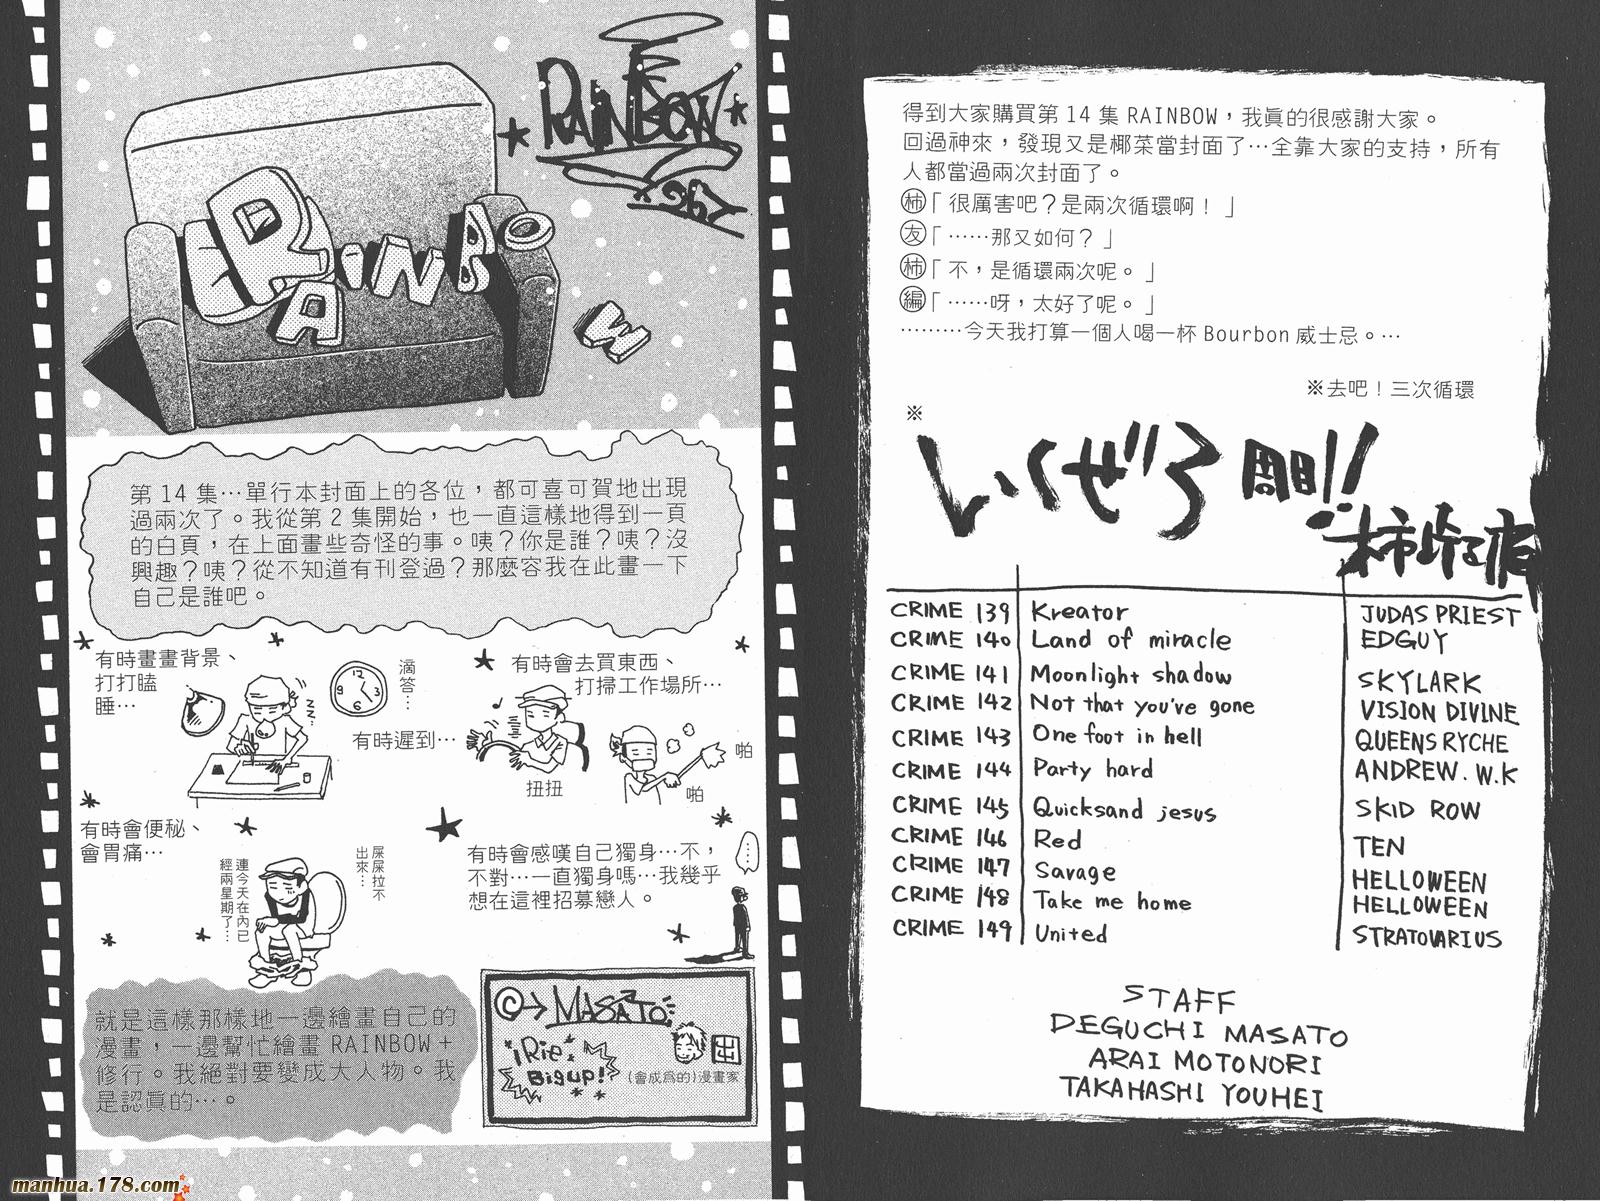 得到大家購買第14集RAINBOW，我真的很感謝大家。
回過神來，發現又是椰菜當封面了…全靠大家的支持，所有
人都當過兩次封面了。
柿「很厲害吧？是兩次循環啊！」
友「……那又如何？」
柿「不，是循環兩次呢。」
編「……呀，太好了呢。」
………今天我打算一個人喝一杯Bourbon威士忌。…
※去吧！三次循環
※
いくぜ3周目!!
CRIME 139 Kreator JUDAS PRIEST
CRIME 140 Land of miracle EDGUY
CRIME 141 Moonlight shadow SKYLARK
CRIME 142 Not that you've gone VISION DIVINE
CRIME 143 One foot in hell QUEENSRYCHE
CRIME 144 Party hard ANDREW. W.K
CRIME 145 Quicksand jesus SKID ROW
CRIME 146 Red TEN
CRIME 147 Savage HELLOWEEN
CRIME 148 Take me home HELLOWEEN
CRIME 149 United STRATOVARIUS
STAFF
DEGUCHI MASATO
ARAI MOTONORI
TAKAHASHI YOUHEI
RAINBOW
267
RAINBOW
第14集…單行本封面上的各位，都可喜可賀地出現
過兩次了。我從第2集開始，也一直這樣地得到一頁
的白頁，在上面畫些奇怪的事。咦？你是誰？咦？沒
興趣？咦？從不知道有刊登過？那麼容我在此畫一下
自己是誰吧。
有時畫畫背景、
打打瞌
睡…
zzz
滴答…
有時遲到…
有時會去買東西、
打掃工作場所…
扭扭
啪
啪
有時會便秘、
會胃痛…
屎屎拉不
出來…
連今天在內已
經兩星期了…
有時會感嘆自己獨身…不，
不對…一直獨身嗎…我幾乎
想在這裡招募戀人。
…
就是這樣那樣地一邊繪畫自己的
漫畫，一邊幫忙繪畫RAINBOW＋
修行。我絕對要變成大人物。我
是認真的…。
©→MASATO
iRie
Big up!
出
(會成為的)漫畫家
manhua.178.com